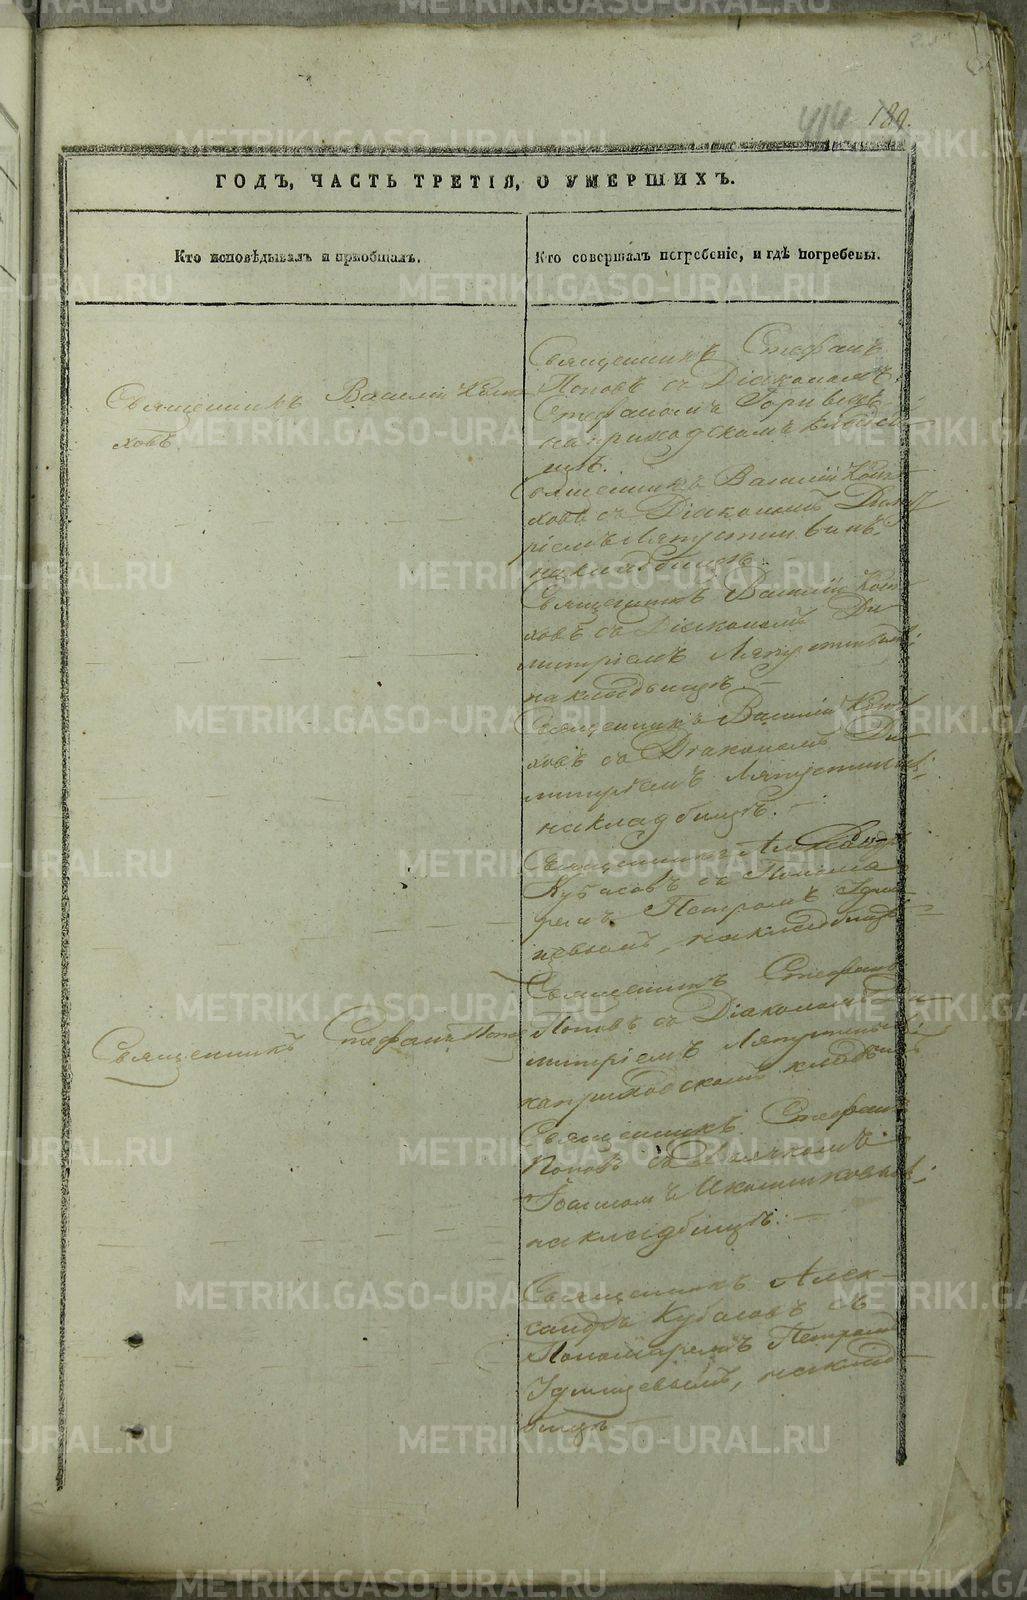 414 189.
ГОДЪ, ЧАСТЬ ТРЕТІЯ, О УМЕРШИХЪ.
Кто исповѣдывалъ и пріобщалъ.
Кто совершалъ погребеніе, и гдѣ погребены.
Священникъ Василій
ховъ.
Священникъ Стефанъ
Поповъ съ Діакономъ
Стефаномъ
на приходскомъ кладби
щѣ.
Священникъ Василій
ховъ съ Діакономъ Димит
ріемъ Ляпустинымъ
на кладбищѣ.
Священникъ Василій
ховъ съ Діакономъ Ди
митріемъ Ляпустинымъ
на кладбищѣ.
Священникъ Василій
ховъ съ Діакономъ Ди
митріемъ Ляпустинымъ
на кладбищѣ.
Священникъ Александръ
Кубасовъ съ Понома
ремъ Петромъ Удин
цевымъ, на кладбищѣ
Священникъ Стефанъ Попо
Священникъ Стефанъ
Поповъ съ Діакономъ Ди
митріемъ Ляпустинымъ
на приходскомъ кладбищѣ
Священникъ Стефанъ
Поповъ съ Дьячкомъ
Іоанномъ Иконниковымъ
на кладбищѣ.
Священникъ Алек
сандръ Кубасовъ съ
Пономаремъ Петромъ
Удинцевымъ, на клад
бищѣ
METRIKI.GASO-URAL.RU